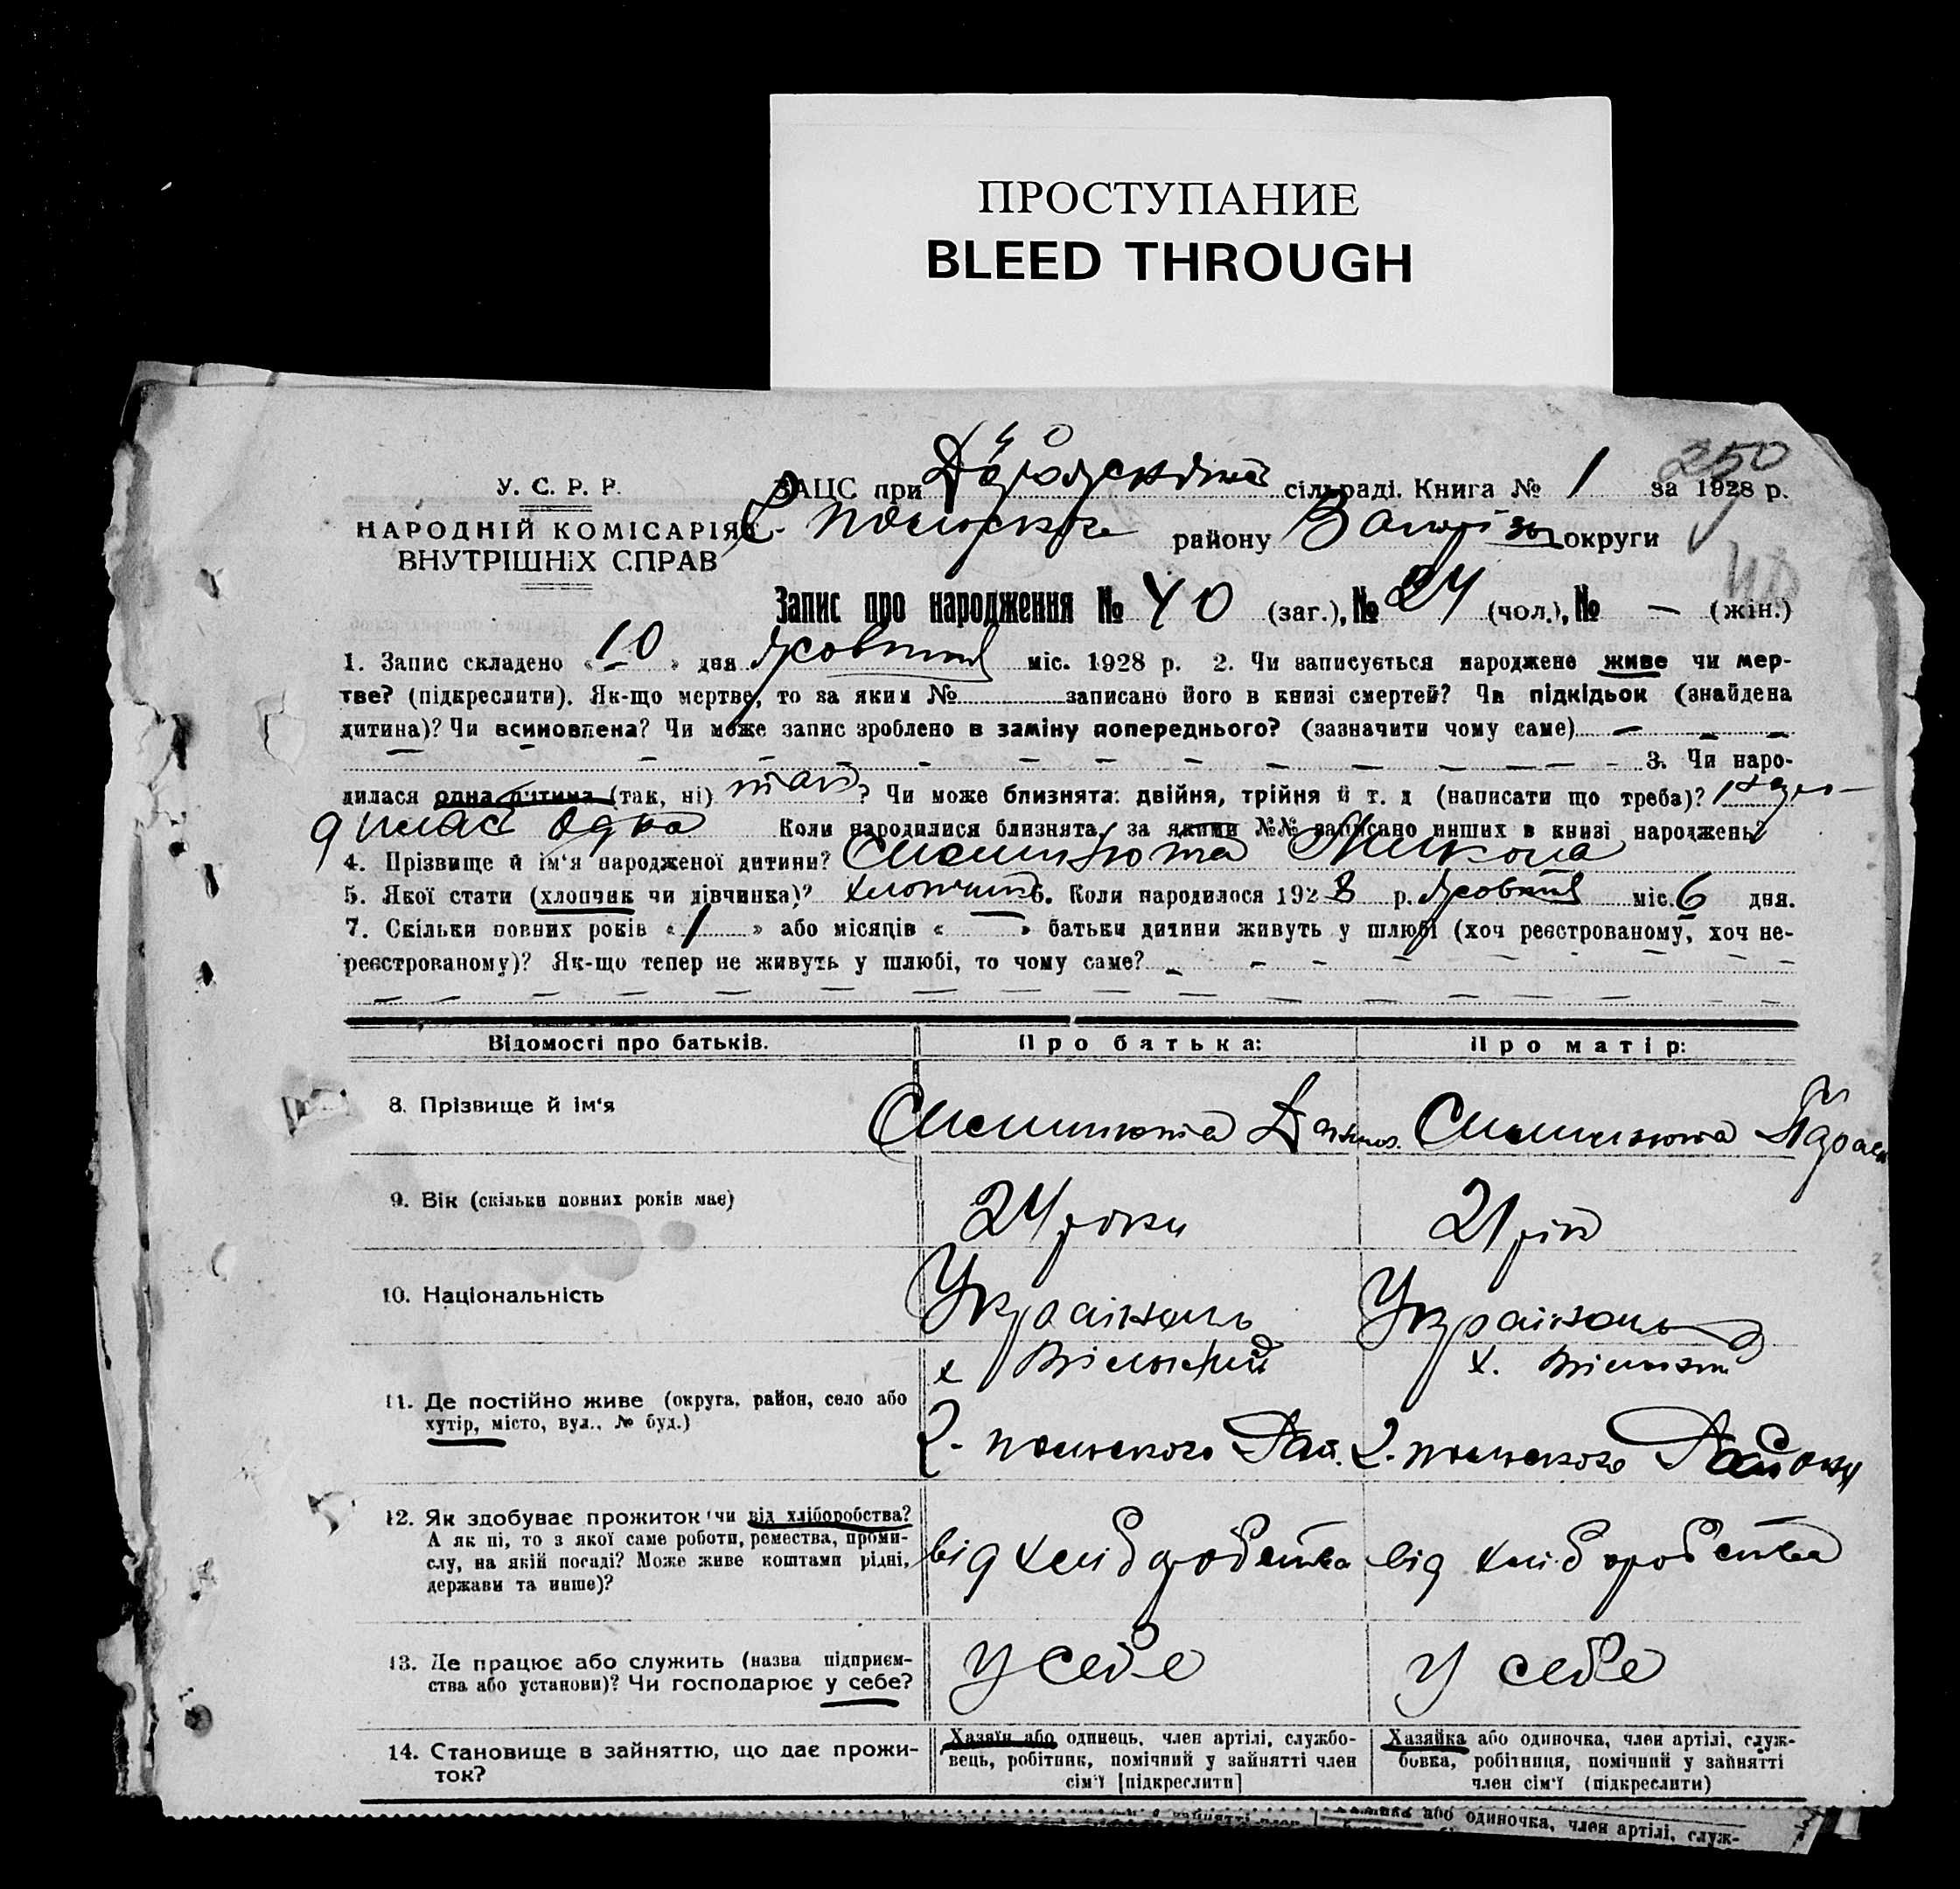 ПРОСТУПАНИЕ
BLEED THROUGH
250
У. С. Р. Р.
НАРОДНІЙ КОМІСАРІЯТ
ВНУТРІШНІХ СПРАВ
ЗАЦС при сільраді. Книга № 1 за 1928 р.
району округи
40
Запис про народження № 40 (заг.), № 24 (чол.), № — (жін.)
1. Запис складено «10» дня Жовтня міс. 1928 р. 2. Чи записується народжене живе чи мер-
тве? (підкреслити). Як-що мертве, то за яким № записано його в книзі смертей? Чи підкідьок (знайдена
дитина)? Чи всиновлена? Чи може запис зроблено в заміну попереднього? (зазначити чому саме) — — —
— — — — — — — — — — — — 3. Чи наро-
дилася одна дитина (так, ні) так? Чи може близнята: двійня, трійня й т. д (написати що треба)?
одна Коли народилися близнята, за якими №№ записано инших в книзі народжень?
4. Прізвище й ім‘я народженої дитини? Микола
5. Якої стати (хлопчик чи дівчинка)? хлопчик 6. Коли народилося 1928 р. Жовтня міс. 6 дня.
7. Скільки повних років «1» або місяців «—» батьки дитини живуть у шлюбі (хоч реєстрованому, хоч не-
реєстрованому)? Як-що тепер не живуть у шлюбі, то чому саме? — — — — — — — —
— — — — — — — — — — — — — — — — — —
Відомості про батьків. Про батька: Про матір:
8. Прізвище й ім‘я
9. Вік (скільки повних років має) 24 роки 21 рік
10. Національність Українець Українець
11. Де постійно живе (округа, район, село або
хутір, місто, вул., № буд.)
х. Вільний х.
Г.-польського Рай. Г.-польського Району
12. Як здобуває прожиток чи від хліборобства?
А як ні, то з якої саме роботи, ремества, проми-
слу, на якій посаді? Може живе коштами рідні,
держави та инше)?
від хліборобства від хліборобства
13. Де працює або служить (назва підприєм-
ства або установи)? Чи господарює у себе?
у себе у себе
14. Становище в зайняттю, що дає прожи-
ток?
Хазяїн або одинець, член артілі, службо-
вець, робітник, помічний у зайнятті член
сім‘ї [підкреслити]
Хазяйка або одиночка, член артілі, служ-
бовка, робітниця, помічний у зайнятті
член сім‘ї (підкреслити)
або одиночка, член артілі, служ-